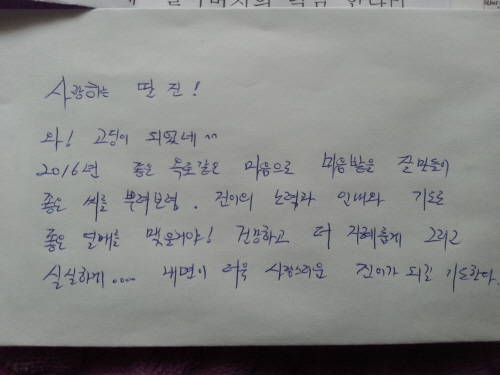 사랑하는 딸 진!
와! 고딩이 되었네^^
2016년 좋은 옥토같은 마음으로 마음밭을 잘 만들어
좋은 씨를 뿌려보렴. 진이의 노력과 인내와 기도로
좋은 열매를 맺을거야! 건강하고 더 지혜롭게 그리고
실실하게.... 내면이 더욱 사랑스러운 진이가 되길 기도한다.